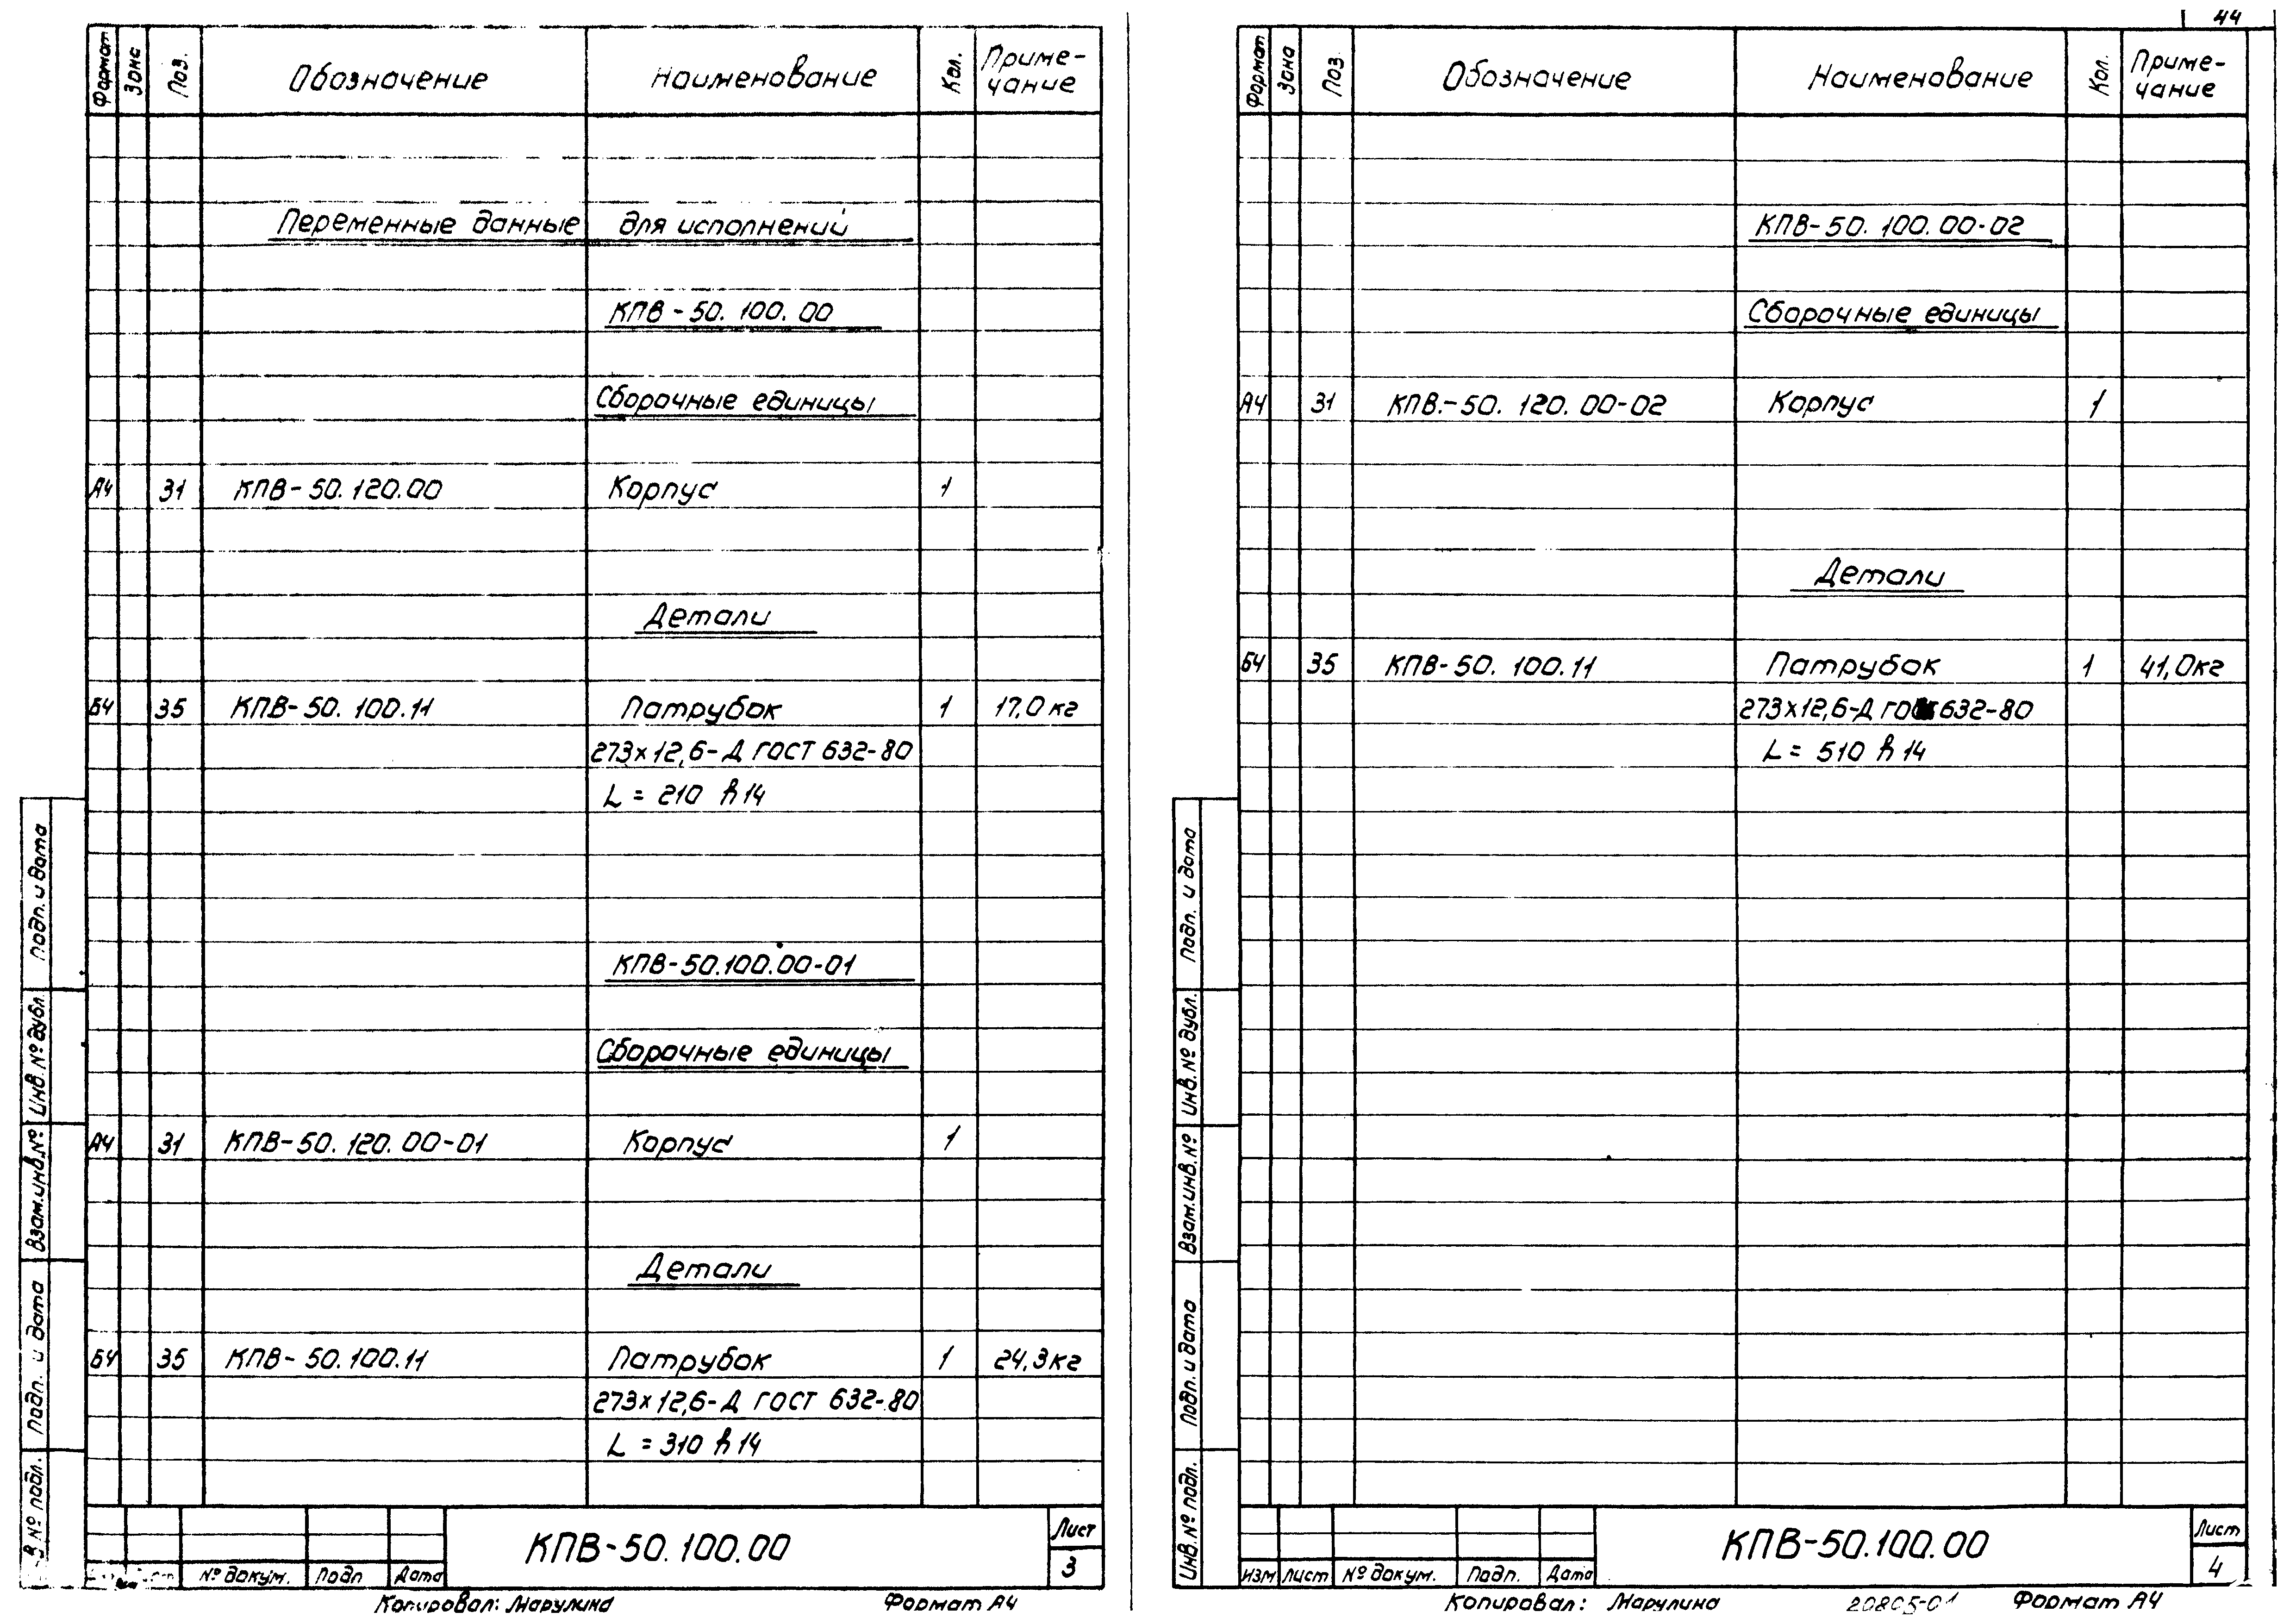 Формат Зона Поз. Обозначение Наименование Кол. Приме-
чание
Переменные данные для исполнений
КПВ-50.100.00
Сборочные единицы
А4 31 КПВ-50.120.00 Корпус 1
Детали
БЧ 35 КПВ-50.100.11 Патрубок 1 17,0кг
273х12,6-Д ГОСТ 632-80
L = 210 h14
КПВ-50.100.00-01
Сборочные единицы
А4 31 КПВ-50.120.00-01 Корпус 1
Детали
БЧ 35 КПВ-50.100.11 Патрубок 1 24,3кг
273х12,6-Д ГОСТ 632-80
L = 310 h14
Подп. и дата
Инв.№ дубл.
Взам.инв.№
Подп. и дата
№ подл.
№ докум. Подп Дата
КПВ-50.100.00
Лист
3
Копировал: Марулина Формат А4
44
Формат Зона Поз. Обозначение Наименование Кол. Приме-
чание
КПВ-50.100.00-02
Сборочные единицы
А4 31 КПВ.-50.120.00-02 Корпус 1
Детали
БЧ 35 КПВ-50.100.11 Патрубок 1 41,0кг
273х12,6-Д ГОСТ 632-80
L = 510 h14
Подп. и дата
Инв.№ дубл.
Взам.инв.№
Подп. и дата
Инв.№ подл.
Изм Лист № докум. Подп. Дата
КПВ-50.100.00
Лист
4
Копировал: Марулина 20805-01 Формат А4